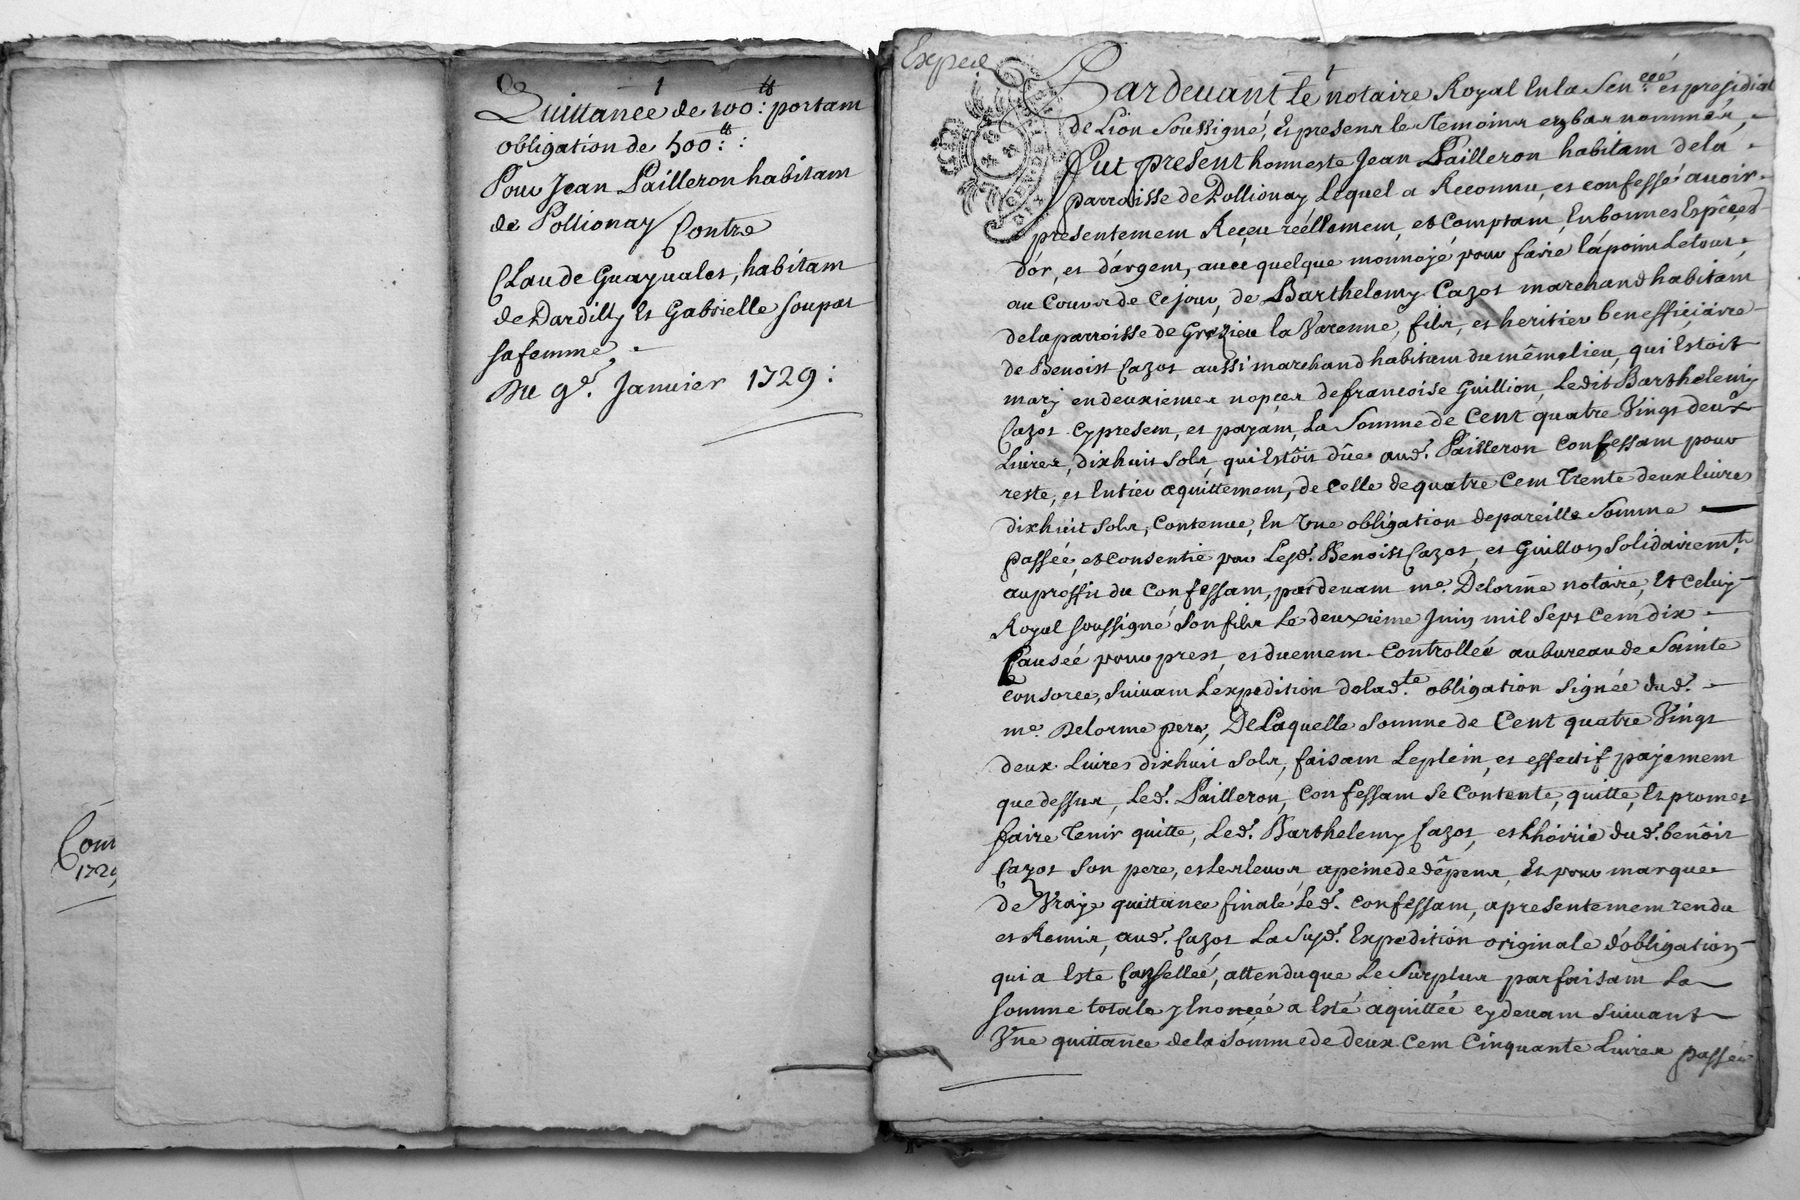 1
Quittance de 100.tt portant
obligation de 500.tt :
Pour Jean Pailleron habitant
de Pollionay Contre
Claude Guayualet, habitant
de Dardilly Et Gabrielle Soupat
sa femme, -
Du 9e. Januier 1729 :
Com
1729
Exped
1
Pardeuant le notaire Royal En la Sen.cée et presidial
de Lion Soussigné, Et present les Temoins cy bas nommés, -
Fut present honneste Jean Pailleron habitant de la -
parroisse de Pollionay Lequel a Reconnu, et confessé auoir -
presentement Reçeu réellement, et Comptant, En bonnes Espêces
d'or, et d'argent, auec quelque monnoyé pour faire l'apoint Le tout -
au Cours de Ce jour, de Barthelemy Cazot marchand habitant
de la parroisse de Grezieu la Varenne, fils, et heritier beneffiçiaire
de Benoist Cazot aussi marchand habitant du même lieu, qui Estoit
mary en deuxiemes nopçes de francoise Guillion, Ledit Barthelemy
Cazot cy present, et payant, La Somme de Cent quatre Vingt deux
Liures, dixhuit Sols, qui Estôit dûe aud. Pailleron Confessant pour
reste, et Entier aquittement, de Celle de quatre Cent Trente deux liures
dixhuit Sols, Contenue, En Vne obligation de pareille Somme
passée, et consentie par Lesd. Benoist Cazot, et Guillon Solidairemt.
au proffit du Confessant, pardeuant me. Delorme notaire, Et Celuy
Royal soussigné Son fils Le deuxième Juin mil Sept Cent dix -
Causée pour prest, et duement Controllée au bureau de Sainte
Consorce, Suiuant L'expedition de lad.te obligation Signée dud. -
me. Delorme pere, De Laquelle Somme de Cent quatre Vingt
deux Liures dixhuit Sols, faisant Le plein, et effectif payement
que dessus, Led. Pailleron, Confessant Se Contente, quitte, Et promet
faire Tenir quitte, Led. Barthelemy Cazot, et L'hoirie dud. benoit
Cazot Son pere, et Les leurs, a peine de dêpens, Et pour marque
de Vraye quittance finale Led. Confessant, a presentement rendu
et Remis, aud. Cazot La Susd. Expedition originale d'obligation
qui a Esté Canselleé, attendu que Le Surplus parfaisant La
Somme totale y Enoncéé a Esté aquittée cy deuant Suiuant
Vne quittance de la Somme de deux Cent Cinquante Liures passée